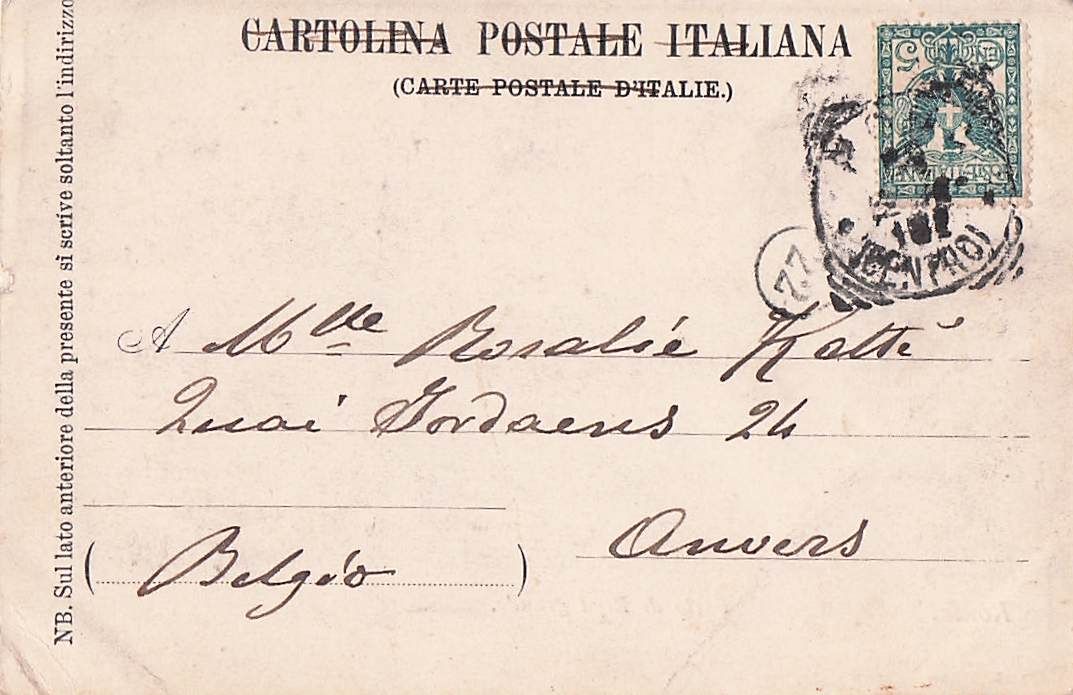 CARTOLINA POSTALE ITALIANA
(CARTE POSTALE D'ITALIE.)
NB. Sul lato anteriore della presente si scrive soltanto l'indirizzo
5
POSTE ITALIANE
(CENTRO)
22
A Mlle Rosalie Katté
Quai Jordaens 24
Anvers
(Belgio)